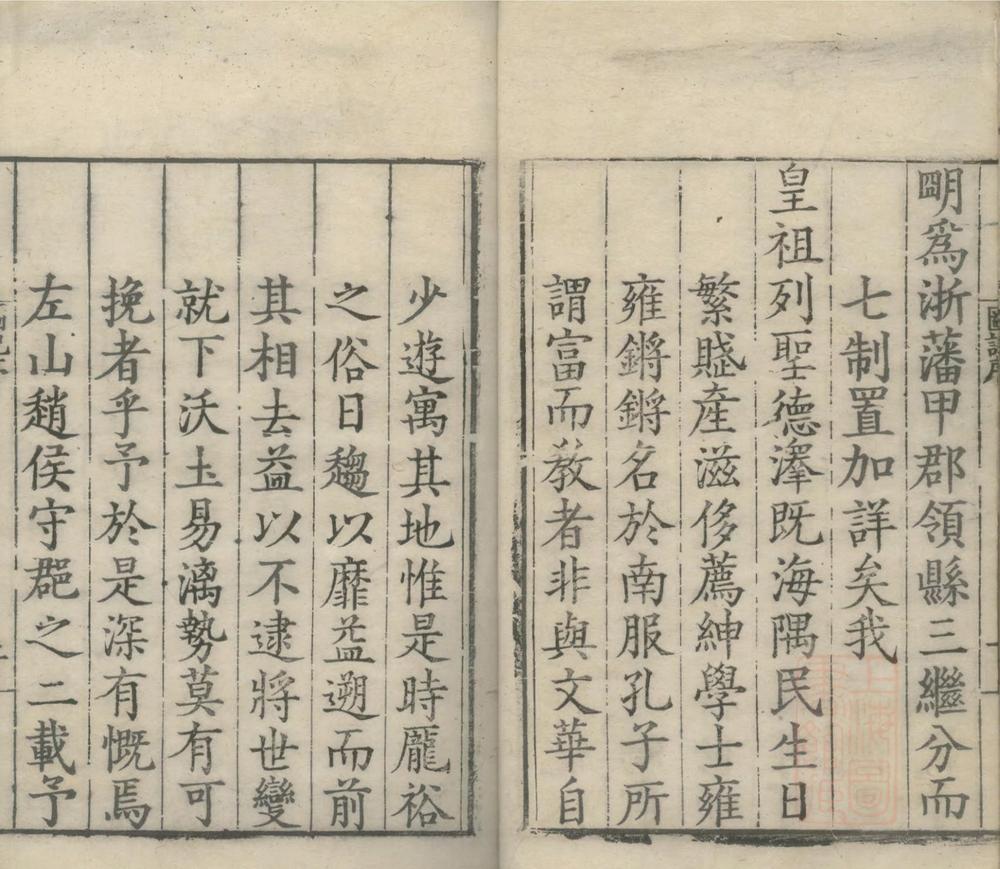 明爲浙藩甲郡領縣三繼分而
七制置加詳矣我
皇祖列聖德澤既海隅民生日
繁賤產滋侈薦紳學士雍
雍鏘鏘名於南服孔子所
謂富而教者非與文華自
少遊寓其地惟是時龎裕
之俗日趨以靡益遡而前
其相去益以不逮將世變
就下沃土易漓勢莫有可
挽者乎予於是深有慨焉
左山趙侯守郡之二載予